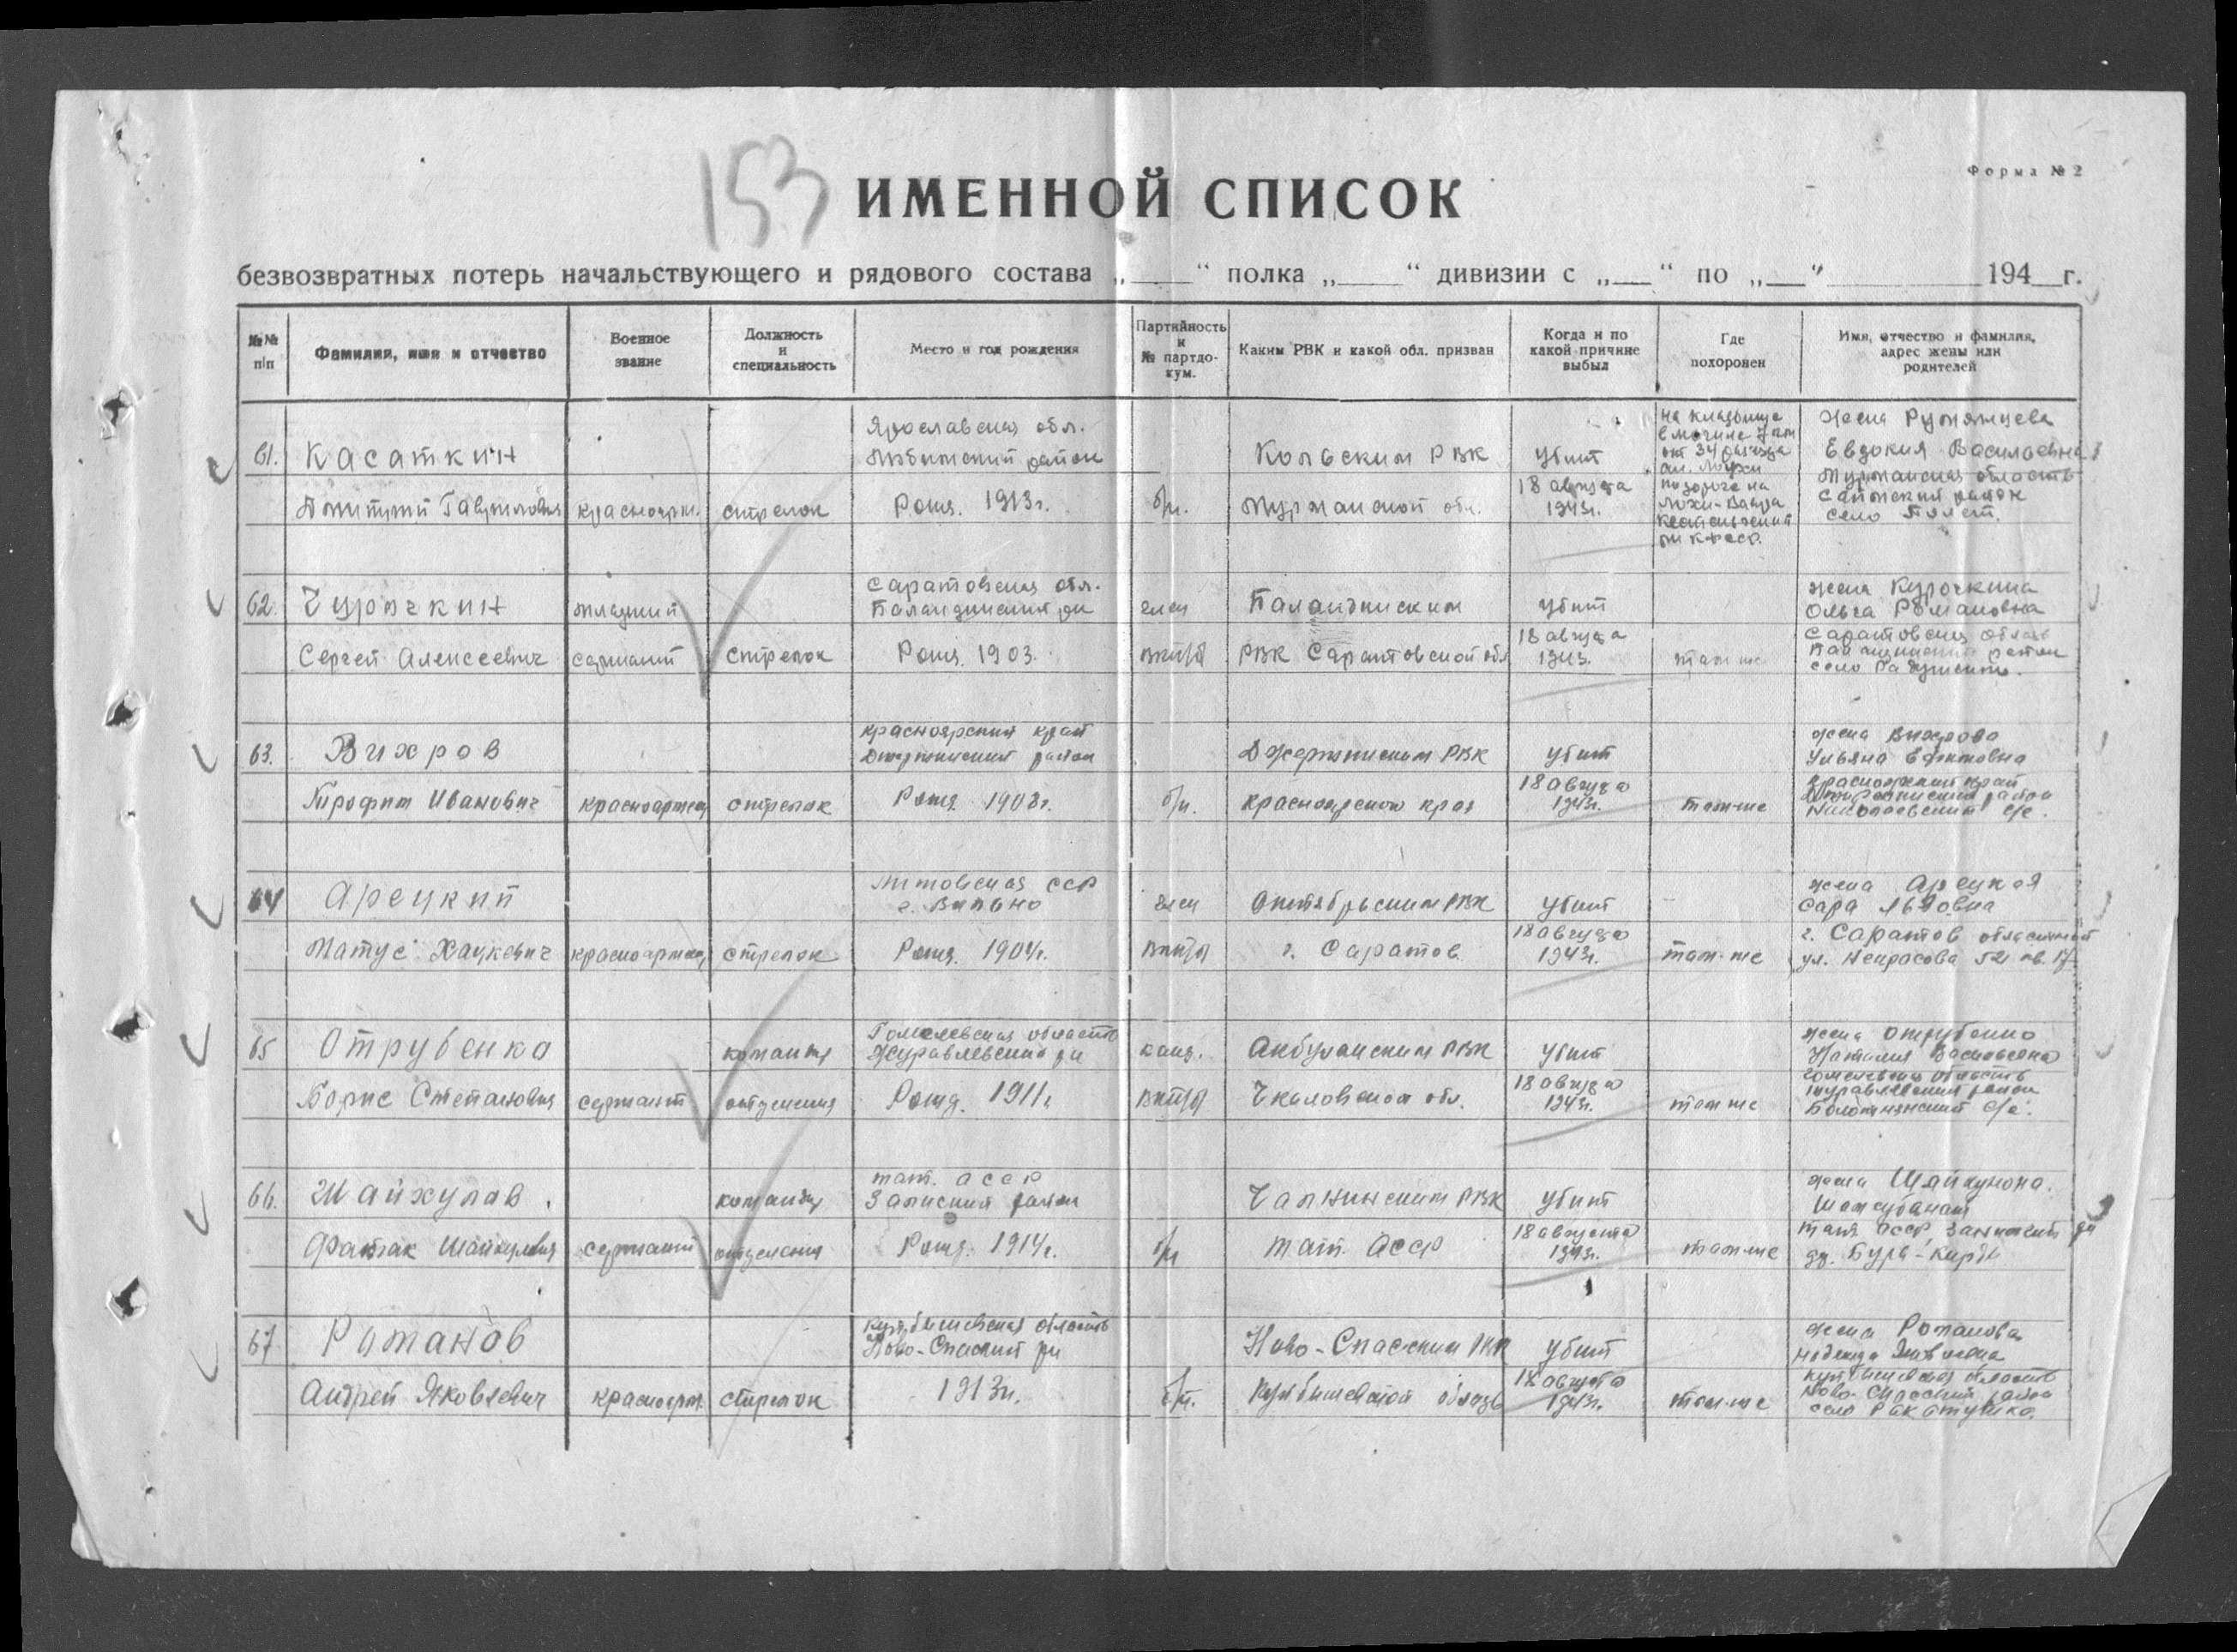 Форма № 2
153
ИМЕННОЙ СПИСОК
безвозвратных потерь начальствующего и рядового состава „ “ полка „ “ дивизии с „ “ по „ “ 194 г.
№№ п/п
Фамилия, имя и отчество
Военное звание
Должность и специальность
Место и год рождения
Партийность и № партдокум.
Каким РВК и какой обл. призван
Когда и по какой причине выбыл
Где похоронен
Имя, отчество и фамилия, адрес жены или родителей
61. Касаткин
Дмитрий Гаврилович
красноарм.
стрелок
Ярославская обл.
Любимский район
Рожд. 1913г.
б/п.
Кольским РВК
Мурманской обл.
убит
18 августа
1943г.
на кладбище
в могиле 7 км
от 34 разъезда
по дороге на
Лохи-Ваара
жена Румянцева
Евдокия Васильевна
Мурманская область
село
62.
Сергей Алексеевич
младший
сержант
стрелок
Саратовская обл.
Баландинский р-н
Рожд. 1903.
член
ВКП/б/
Баландинским
РВК Саратовской обл
убит
18 августа
1943г.
там же
жена Курочкина
Ольга Романовна
Саратовская область
район
село
63. Вихров
Трофим Иванович
красноармеец
стрелок
Красноярский край
Дзержинский район
Рожд. 1908г.
б/п.
Дзержинским РВК
Красноярского края
убит
18 августа
1943г.
там-же
жена Вихрова
Ульяна Ефимовна
Красноярский край
Дзержинский район
Николаевский с/с.
64 Арецкий
Матус Хацкевич
красноармеец
стрелок
Литовская ССР
г. Вильно
Рожд. 1904г.
член
ВКП/б/
Октябрьским РВК
г. Саратов.
убит
18 августа
1943г.
там-же
жена Арецкая
Сара Львовна
г. Саратов
ул. Некрасова 52 кв. 17
65 Отрубенко
Борис Степанович
сержант
командир
отделения
Гомелевская область
Журавлевский р-н
Рожд. 1911г.
канд.
ВКП/б/
Акбулакским РВК
Чкаловской обл.
убит
18 августа
1943г.
там же
жена Отрубенко
Наталия Васильевна
Гомелевская область
Журавлевский район
с/с.
66. Шайхулов.
сержант
командир
отделения
тат. АССР
район
Рожд. 1914г.
б/п
РВК
Тат. АССР
убит
18 августа
1943г.
там-же
жена
Тат. АССР,
67 Романов
Андрей Яковлевич
красноарм.
стрелок
Куйбышевская область
Ново-Спасский р-н
1913г.
б/п.
Ново-Спасским РВК
Куйбышевской область
убит
18 августа
1943г.
там-же
жена Романова
Надежда
Куйбышевская область
Ново-Спасский район
село